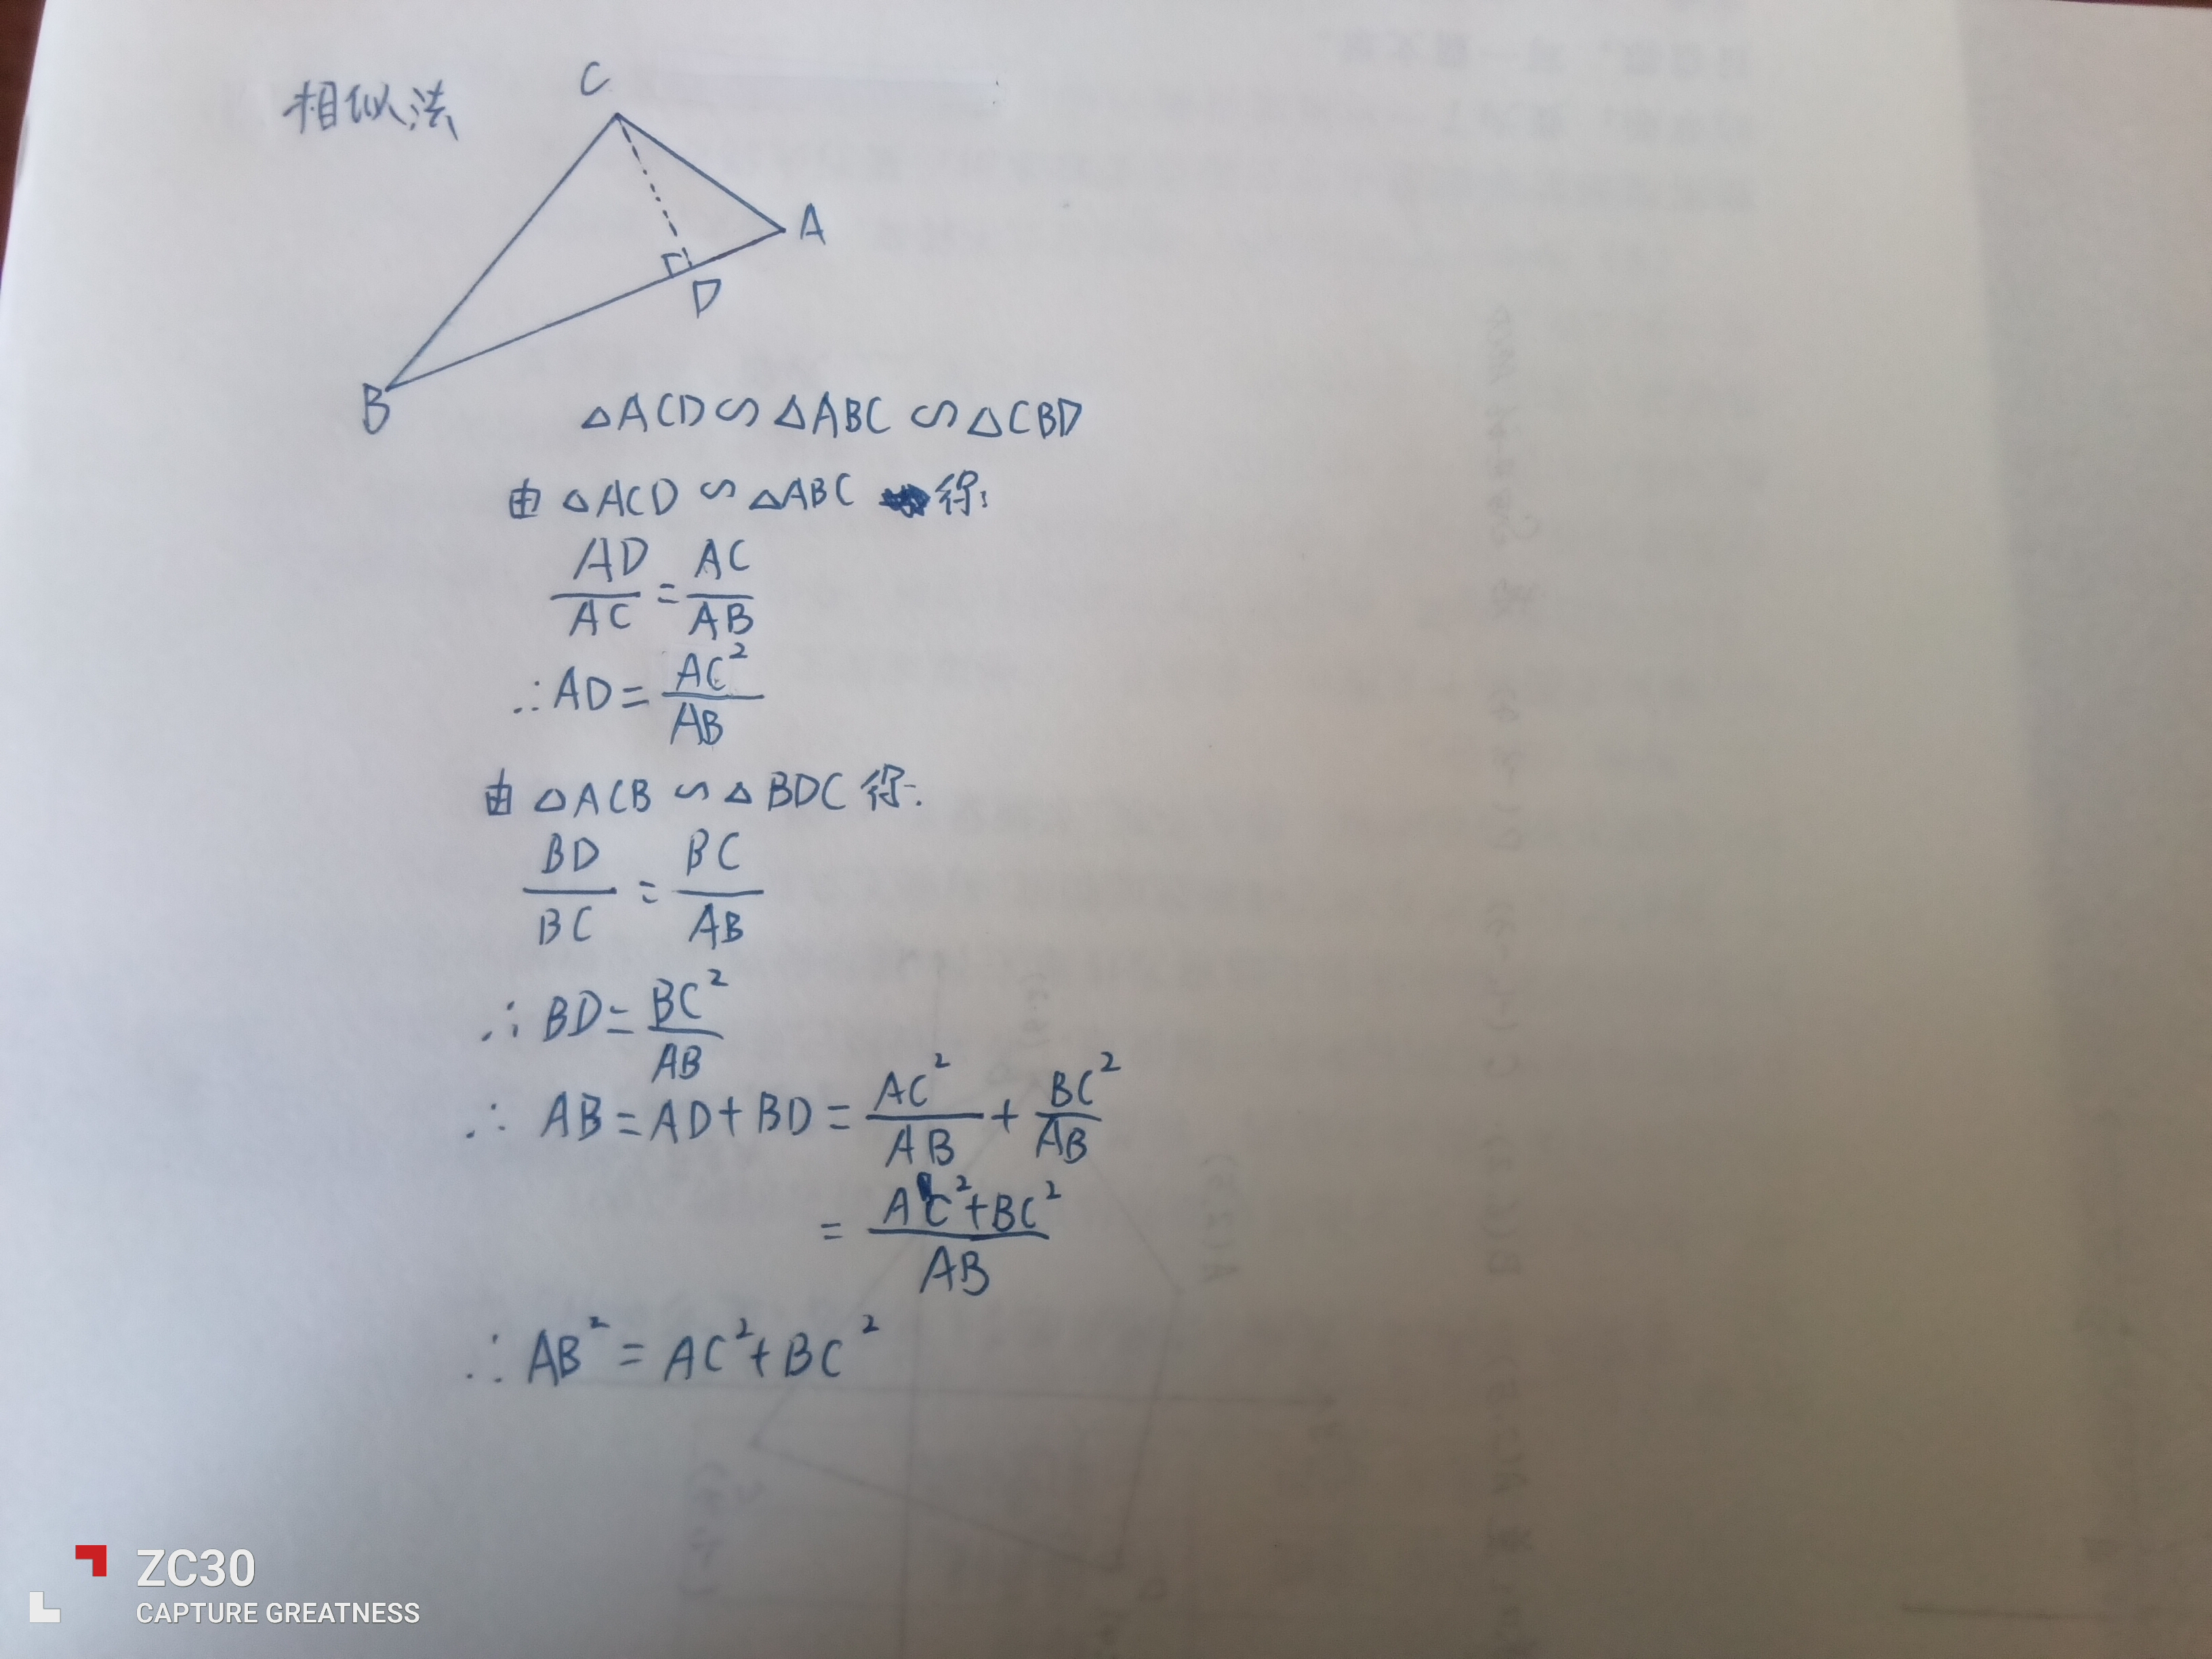 相似法
C
A
D
B
△ACD∽△ABC∽△CBD
由△ACD∽△ABC 得:
AD/AC=AC/AB
∴AD=AC²/AB
由△ACB∽△BDC得:
BD/BC=BC/AB
∴BD=BC²/AB
∴AB=AD+BD=AC²/AB+BC²/AB
=AC²+BC²/AB
∴AB²=AC²+BC²
ZC30
CAPTURE GREATNESS